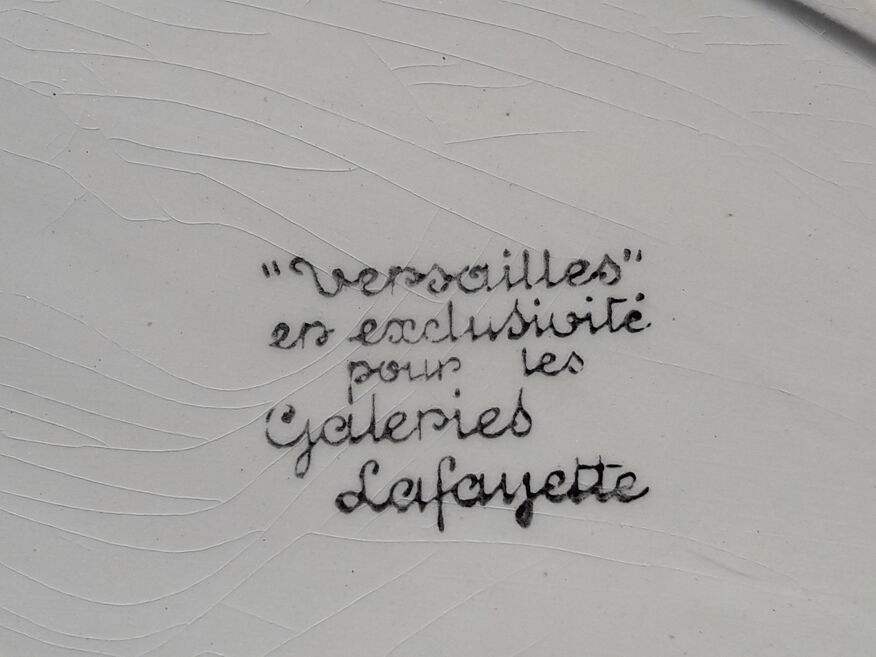 "Versailles"
en exclusivité
pour les
Galeries
Lafayette